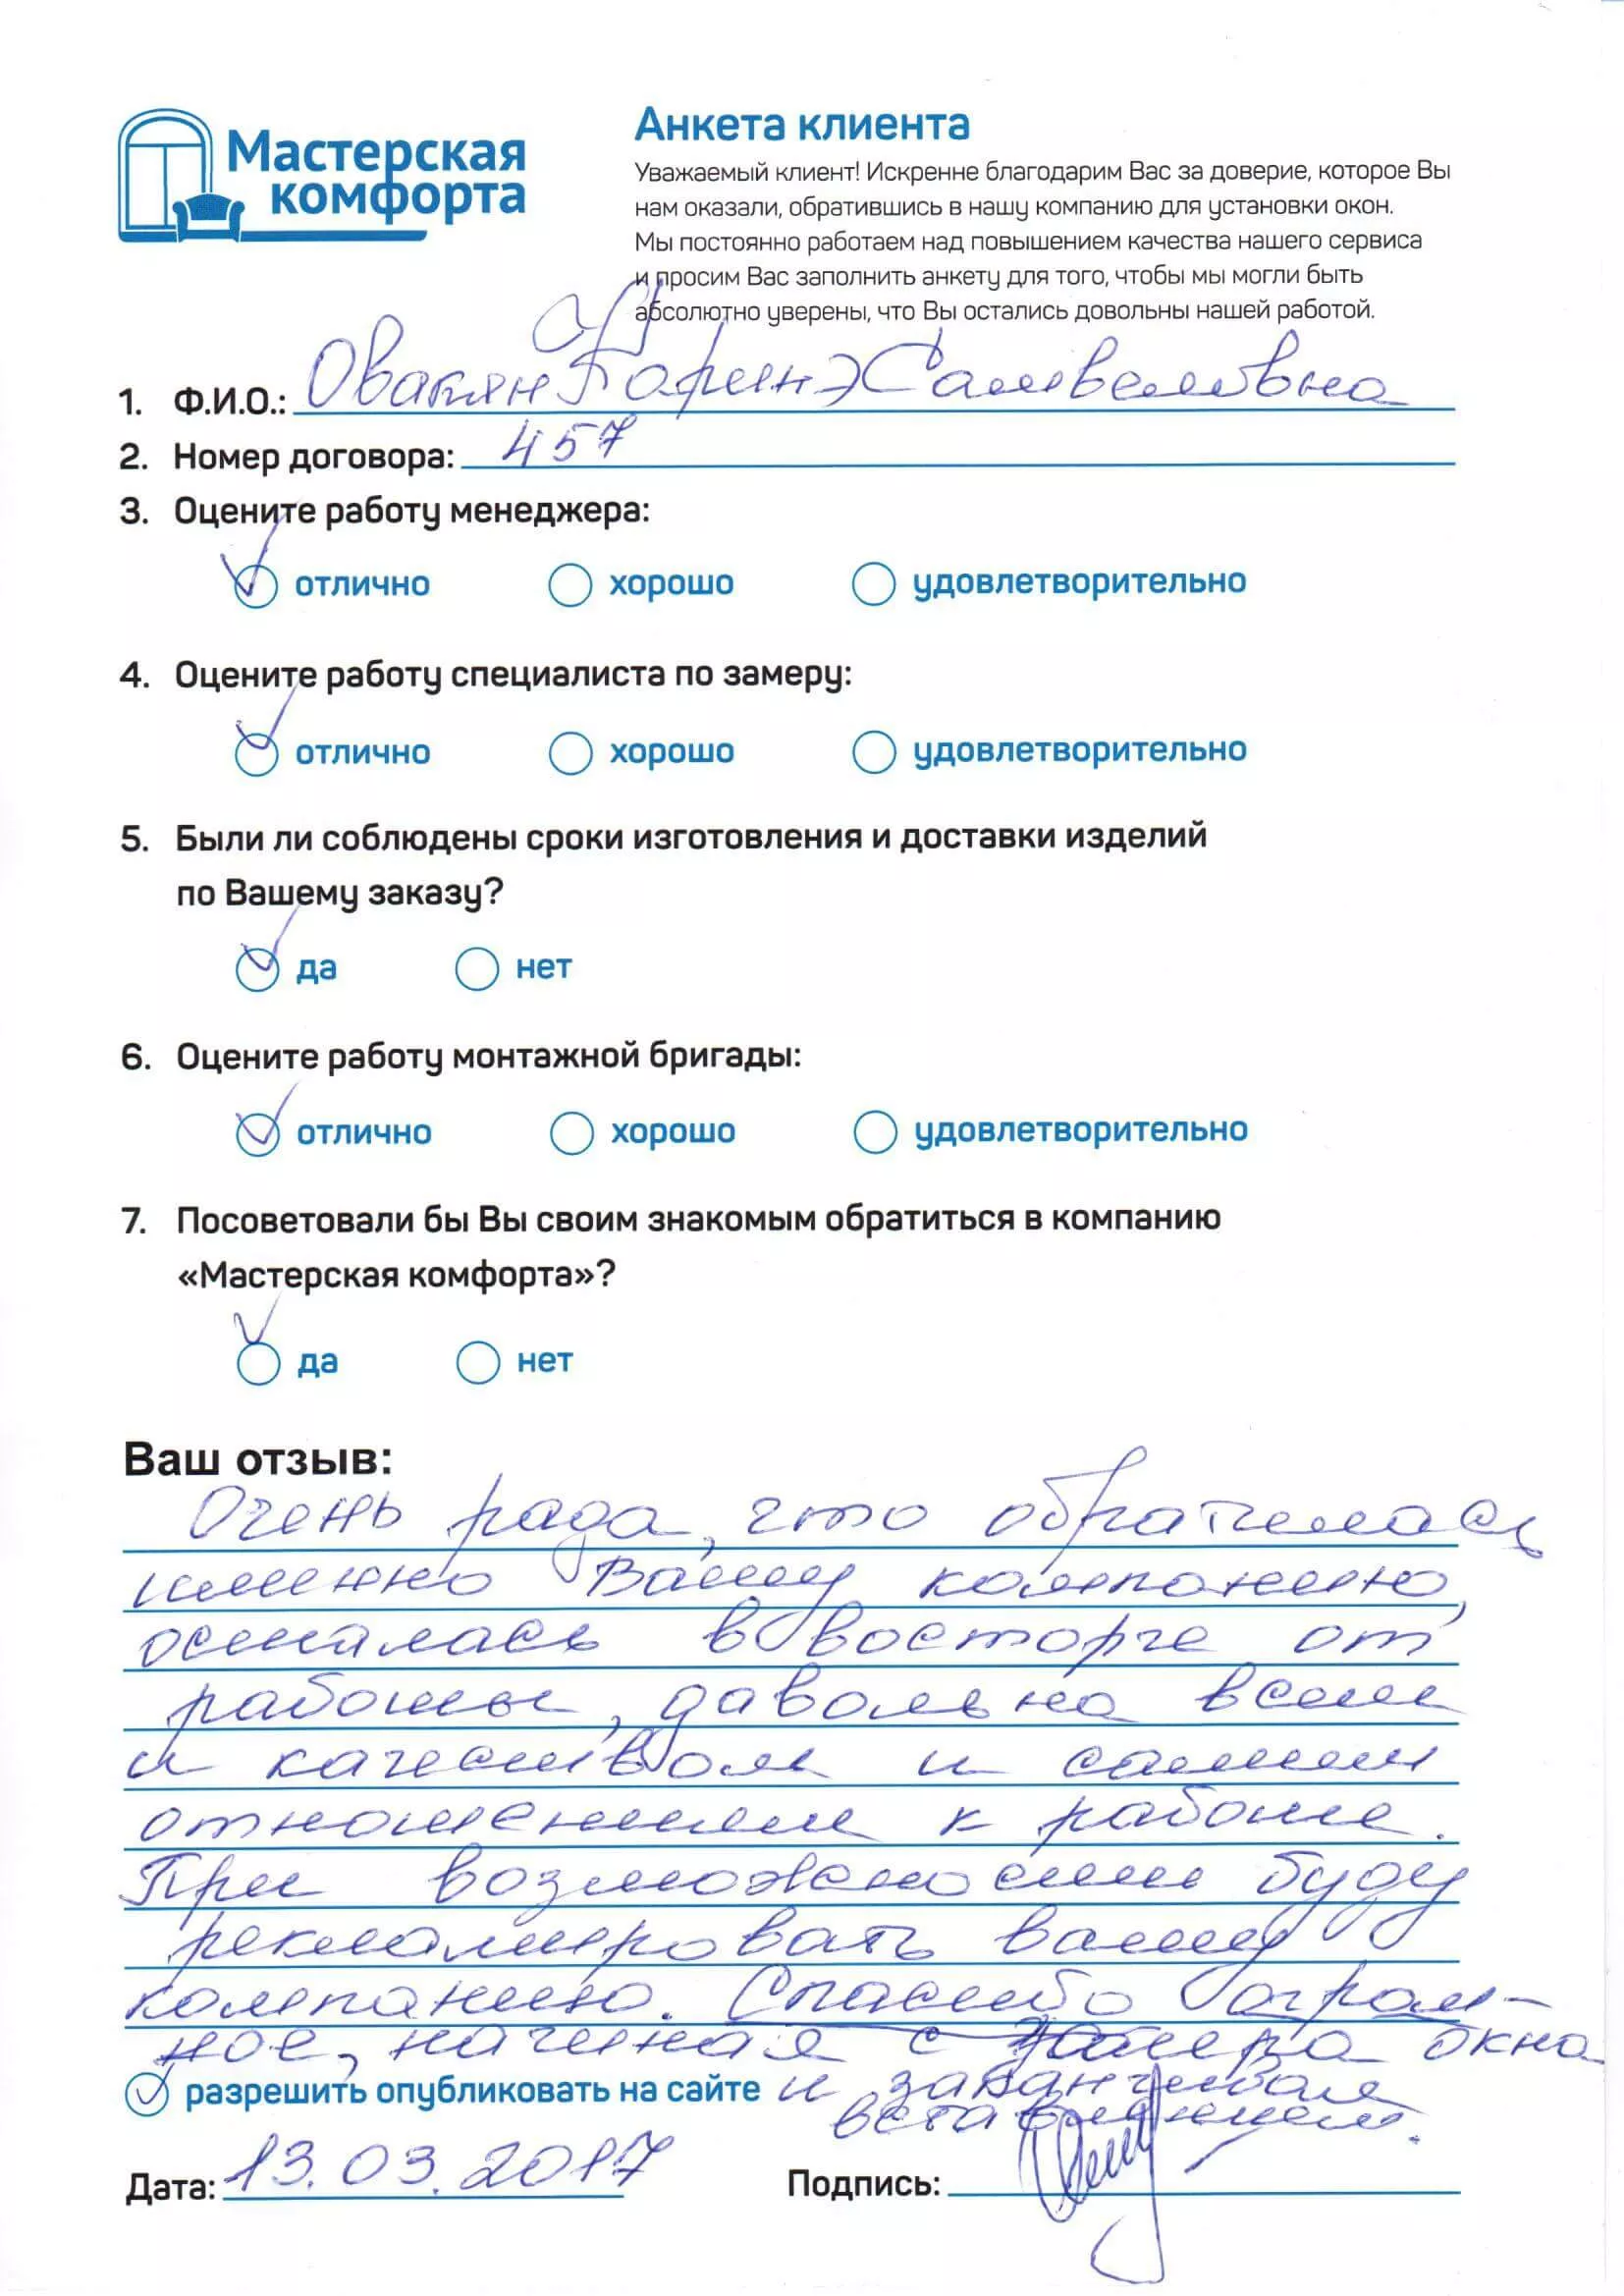 Мастерская
комфорта
Анкета клиента
Уважаемый клиент! Искренне благодарим Вас за доверие, которое Вы
нам оказали, обратившись в нашу компанию для установки окон.
Мы постоянно работаем над повышением качества нашего сервиса
и просим Вас заполнить анкету для того, чтобы мы могли быть
абсолютно уверены, что Вы остались довольны нашей работой.
1. Ф.И.О.: Овакян Каринэ Самвеловна
2. Номер договора: 457
3. Оцените работу менеджера:
отлично хорошо удовлетворительно
4. Оцените работу специалиста по замеру:
отлично хорошо удовлетворительно
5. Были ли соблюдены сроки изготовления и доставки изделий
по Вашему заказу?
да нет
6. Оцените работу монтажной бригады:
отлично хорошо удовлетворительно
7. Посоветовали бы Вы своим знакомым обратиться в компанию
«Мастерская комфорта»?
да нет
Ваш отзыв:
Очень рада, что обратилась
именно в Вашу компанию,
осталась в восторге от
работы, давольна всем
и качеством и самим
отношением к работе.
При возможности буду
рекламировать вашу
компанию. Спасибо огром-
ное, начиная с замера окна
разрешить опубликовать на сайте и заканчивая
вставлением.
Дата: 13.03.2017 Подпись: